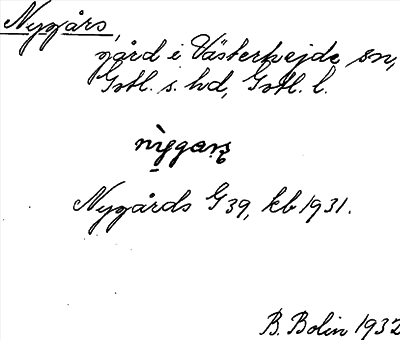 Nygårs,
gård i Västerhejde sn,
Gotl. s. hd, Gotl. l.
nỳgaṛs
Nygårds G 39, kb 1931.
B. Bolin 1932